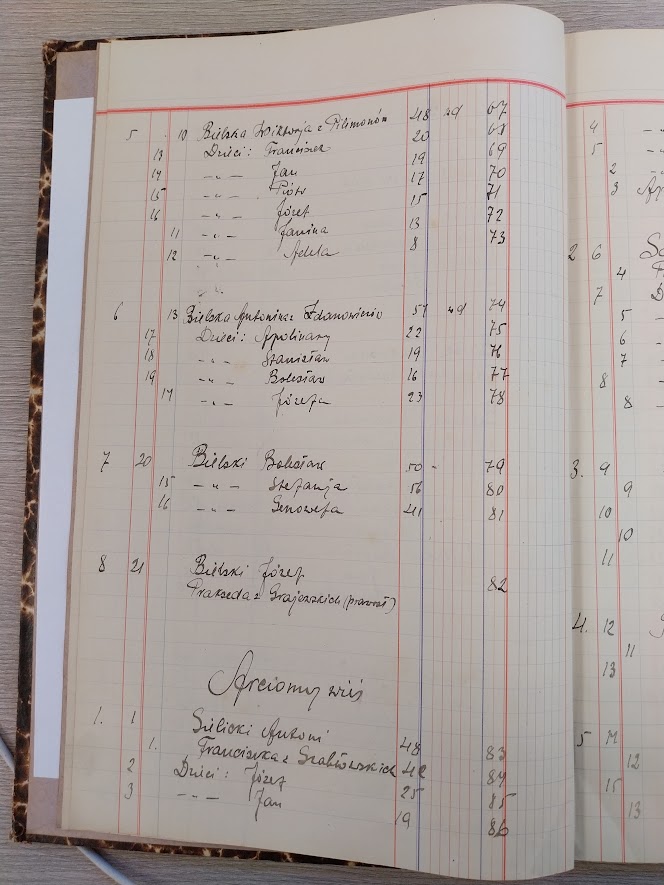 5 10 Bielska Wiktorja z Filimonów 48 wd 67
Dzieci: Franciszek 20 68
13 -„- Jan 19 69
14 -„- Piotr 17 70
15 -„- Józef 15 71
16 -„- Janina 13 72
11 -„- Adela 8 73
12
6 13 Bielska Antonina z Zdanowiczów 57 wd 74
Dzieci: Appolinary 22 75
17 -„- Stanisław 19 76
18 -„- Bolesław 16 77
19 -„- Józefa 23 78
14
7 20 Bielski Bolesław 50 - 79
15 -„- Stefanja 56 80
16 -„- Genowefa 41 81
8 21 Bielski Józef
Prakseda z Grajewskich 82
Arciomy wieś
1. 1 Sielicki Antoni 48 83
1. Franciszka z Szabłowskich 42 84
2 Dzieci: Józef 25 85
3 -„- Jan 19 86
4
5
2
3
2 6
4
7
5
6
7
8
8
3. 9
9
10
10
11
4. 12
11
13
5 14
12
15
13